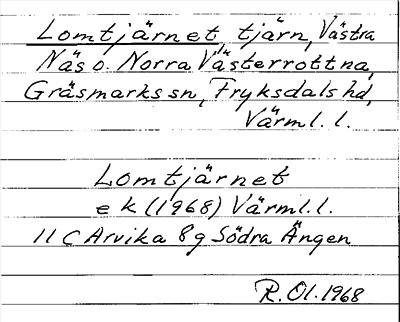 Lomtjärnet, tjärn, Västra
Näs o. Norra Västerrottna,
Gräsmarks sn, Fryksdals hd,
Värml. l.
Lomtjärnet
e k (1968) Värml. l.
11 C Arvika 8 g Södra Ängen
R. Ol. 1968